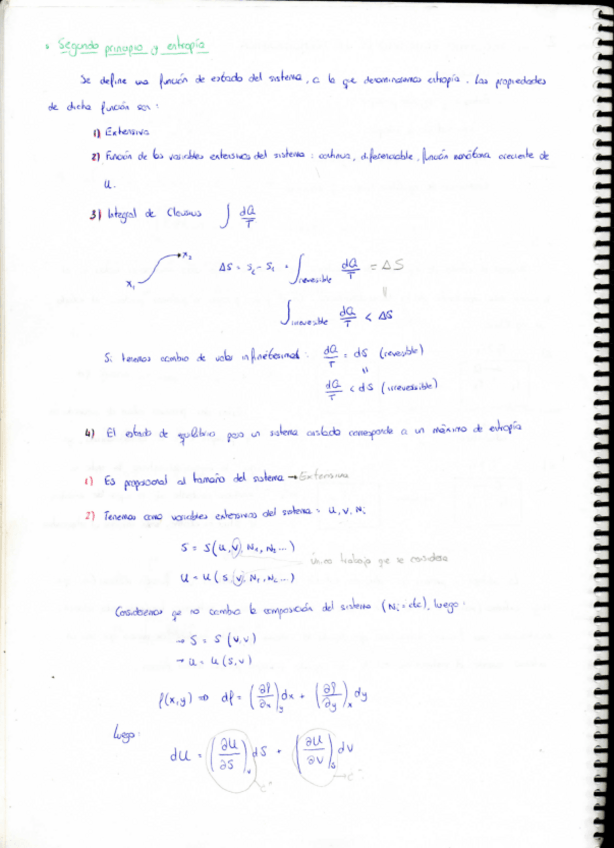 • Segundo principio y entropía
Se define una función de estado del sistema, a la que denominamos entropía. Las propiedades
de dicha función son:
1) Extensiva
2) Función de las variables extensivas del sistema: continua, diferenciable, función monótona creciente de
U.
3) Integral de Clausius ∫ dQ/T
x₁ x₂ ΔS = S₂ - S₁ = ∫reversible dQ/T = ΔS
∫irreversible dQ/T < ΔS
Si tenemos cambio de valor infinitesimal: dQ/T = dS (reversible)
dQ/T < dS (irreversible)
4) El estado de equilibrio para un sistema aislado corresponde a un máximo de entropía
1) Es proporcional al tamaño del sistema → Extensiva
2) Tenemos como variables extensivas del sistema = U, V, Ni
S = S(U, V, N₁, N₂ ...)
único trabajo que se considera
U = U(S, V, N₁, N₂ ...)
Consideremos que no cambia la composición del sistema (Ni = cte), luego:
→ S = S (U, V)
→ U = U (S, V)
f(x,y) ⇒ df = (∂f/∂x)y dx + (∂f/∂y)x dy
Luego:
dU = (∂U/∂S)v dS + (∂U/∂V)s dV